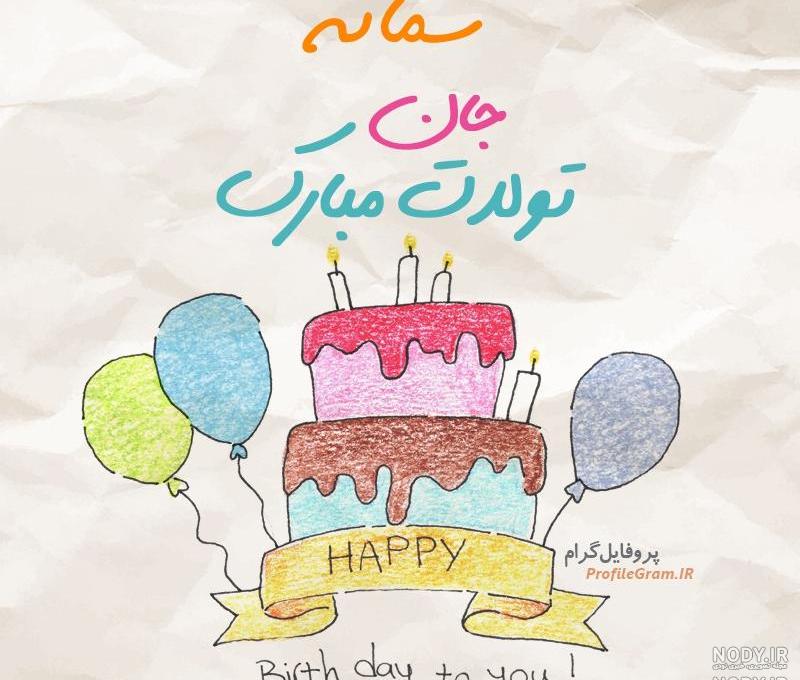 سمانه
جان
تولدت مبارک
HAPPY
پروفایل‌گرام
ProfileGram.IR
Birth day to you!
NODY.IR
NODY.IR